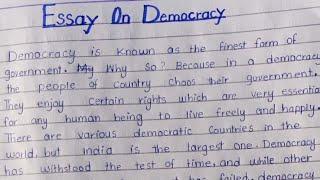 Essay On Democracy
Democracy is known as the finest form of
government. Why so? Because in a democracy
the people of country choos their government.
They enjoy certain rights which are very essential
for any human being to live freely and happily.
There are various democratic countries in the
world, but India is the largest one. Democracy
has withstood the test of time, and while other
has failed, democracy